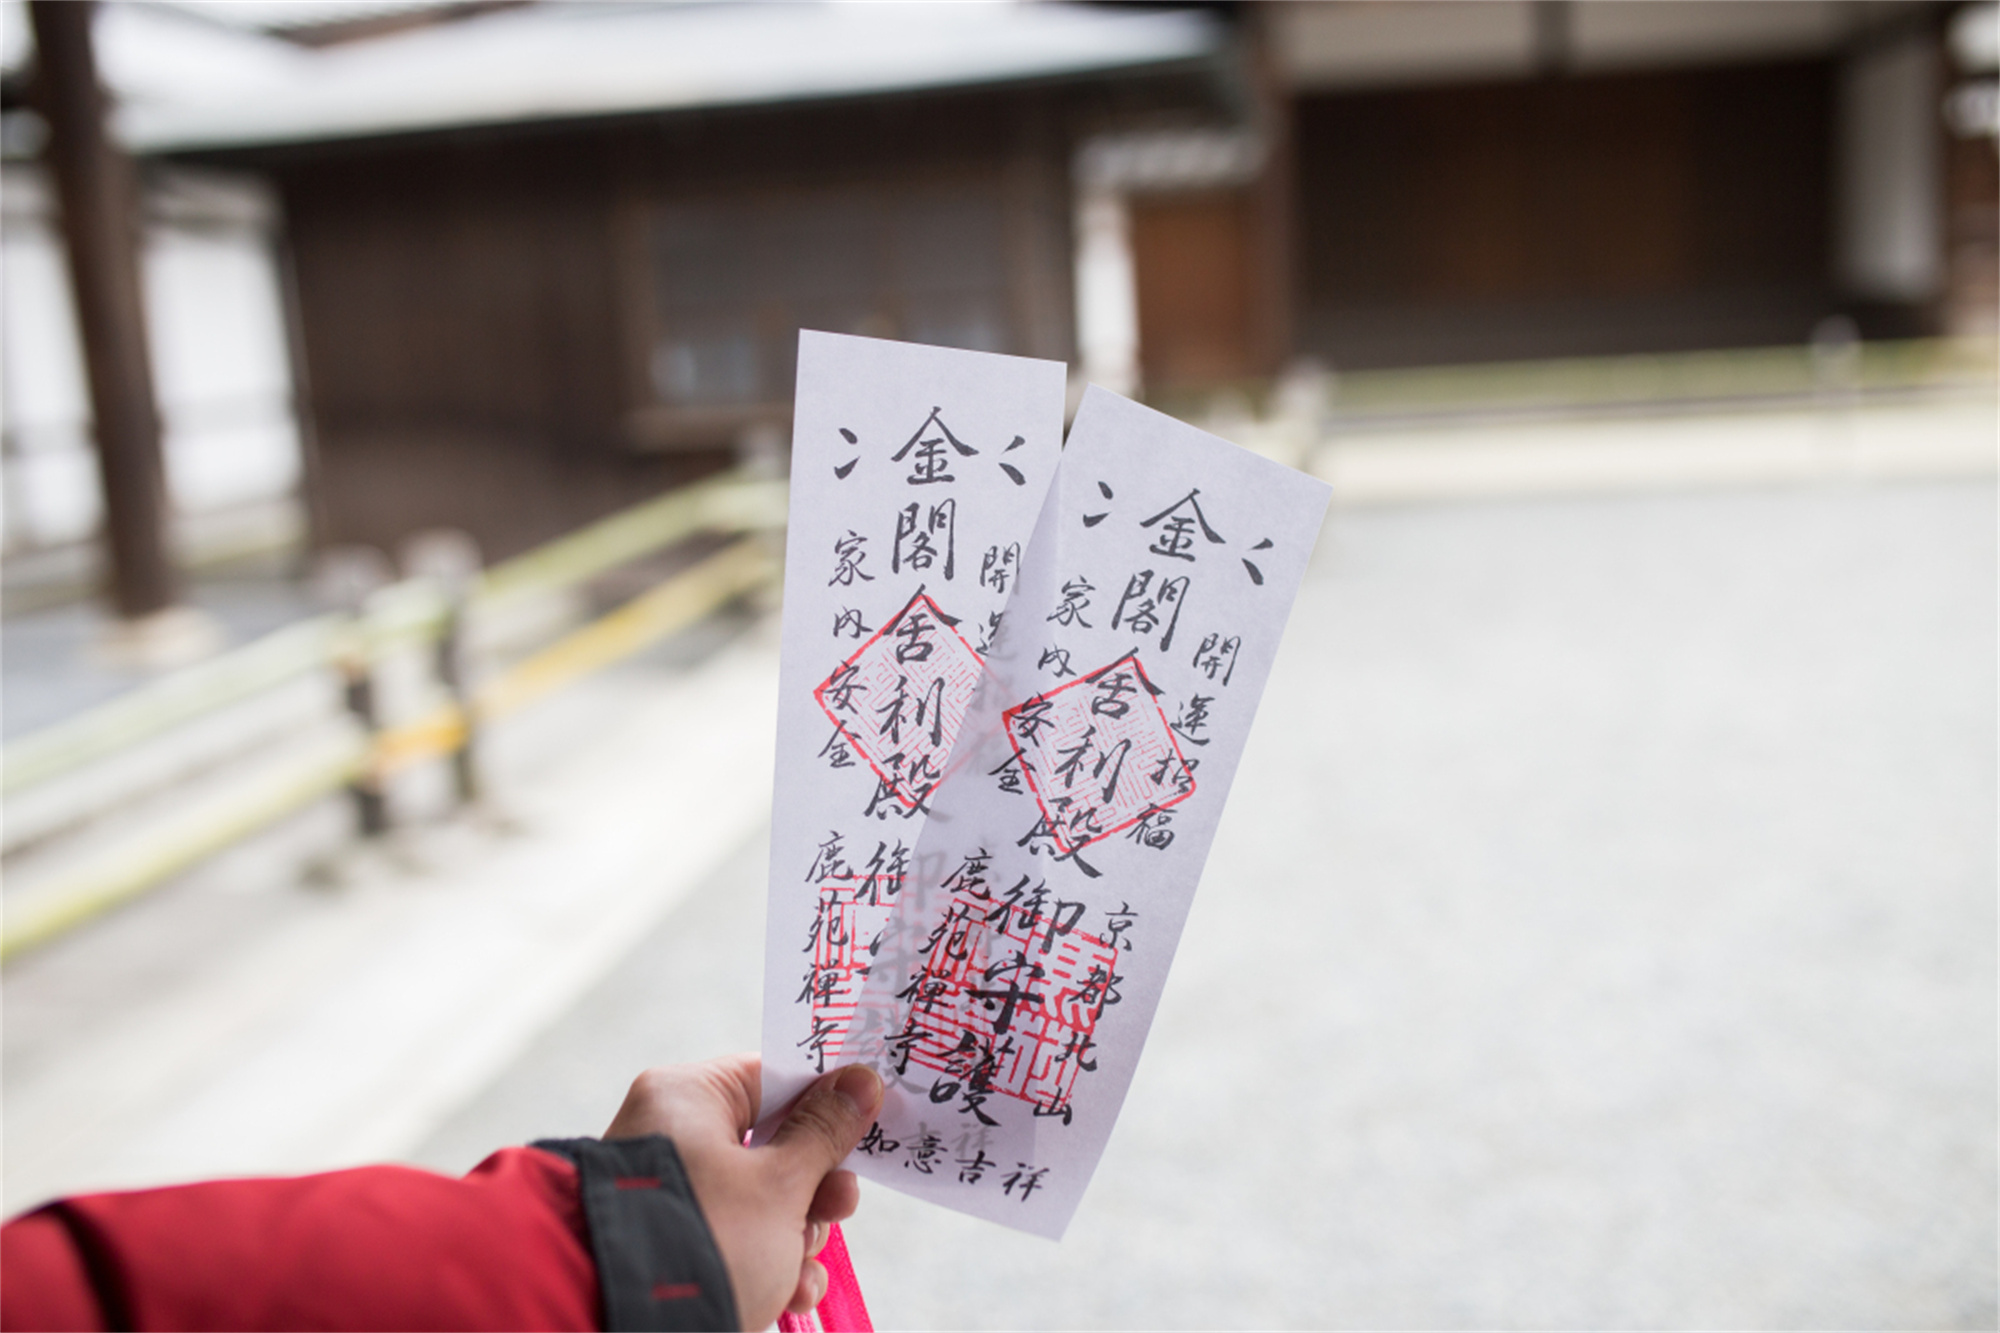 開運
金閣舎利殿御
家内安全
鹿苑禪寺
開運招福
京都北山
金閣舎利殿御守護
家内安全
鹿苑禪寺
如意吉祥